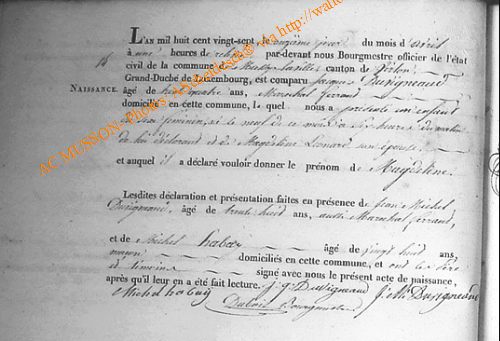 L'AN mil huit cent vingt-sept, le onzième jour du mois d'avril
à une heures de relevée par-devant nous Bourgmestre officier de l'état
civil de la commune de Musson canton de Virton
Grand-Duché de Luxembourg, est comparu Jacques Duvigneaud
16
NAISSANCE.
âgé de quatre ans, Maréchal ferrand
domicilié en cette commune, lequel nous a présenté un enfant
du sexe féminin, né le neuf de ce mois à six heures du matin
de lui déclarand et de Magdeleine Leonard son épouse
et auquel il a déclaré vouloir donner le prénom de Magdeleine.
Lesdites déclaration et présentation faites en présence de Jean Michel
Duvigneaud, âgé de trente huit ans, aussi Maréchal ferrand,
et de Michel habay âgé de vingt huit ans,
maçon domiciliés en cette commune, et ont les père
et témoins signé avec nous le présent acte de naissance,
après qu'il leur en a été fait lecture. J. J. Duvigneaud J: M: Duvigneaud
Michel habay Dubois Bourgmestre
AC MUSSON- Photos via http://